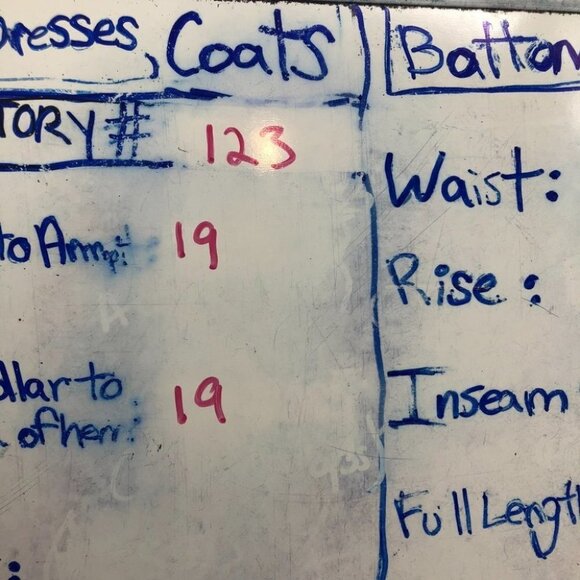 Dresses, Coats
TORY # 123
to Armp: 19
ollar to
of hem: 19
Bottom
Waist:
Rise:
Inseam
Full Length